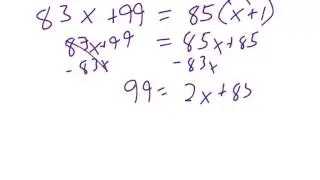 83x+99 = 85(x+1)
83x+99 = 85x+85
-83x -83x
99 = 2x+85